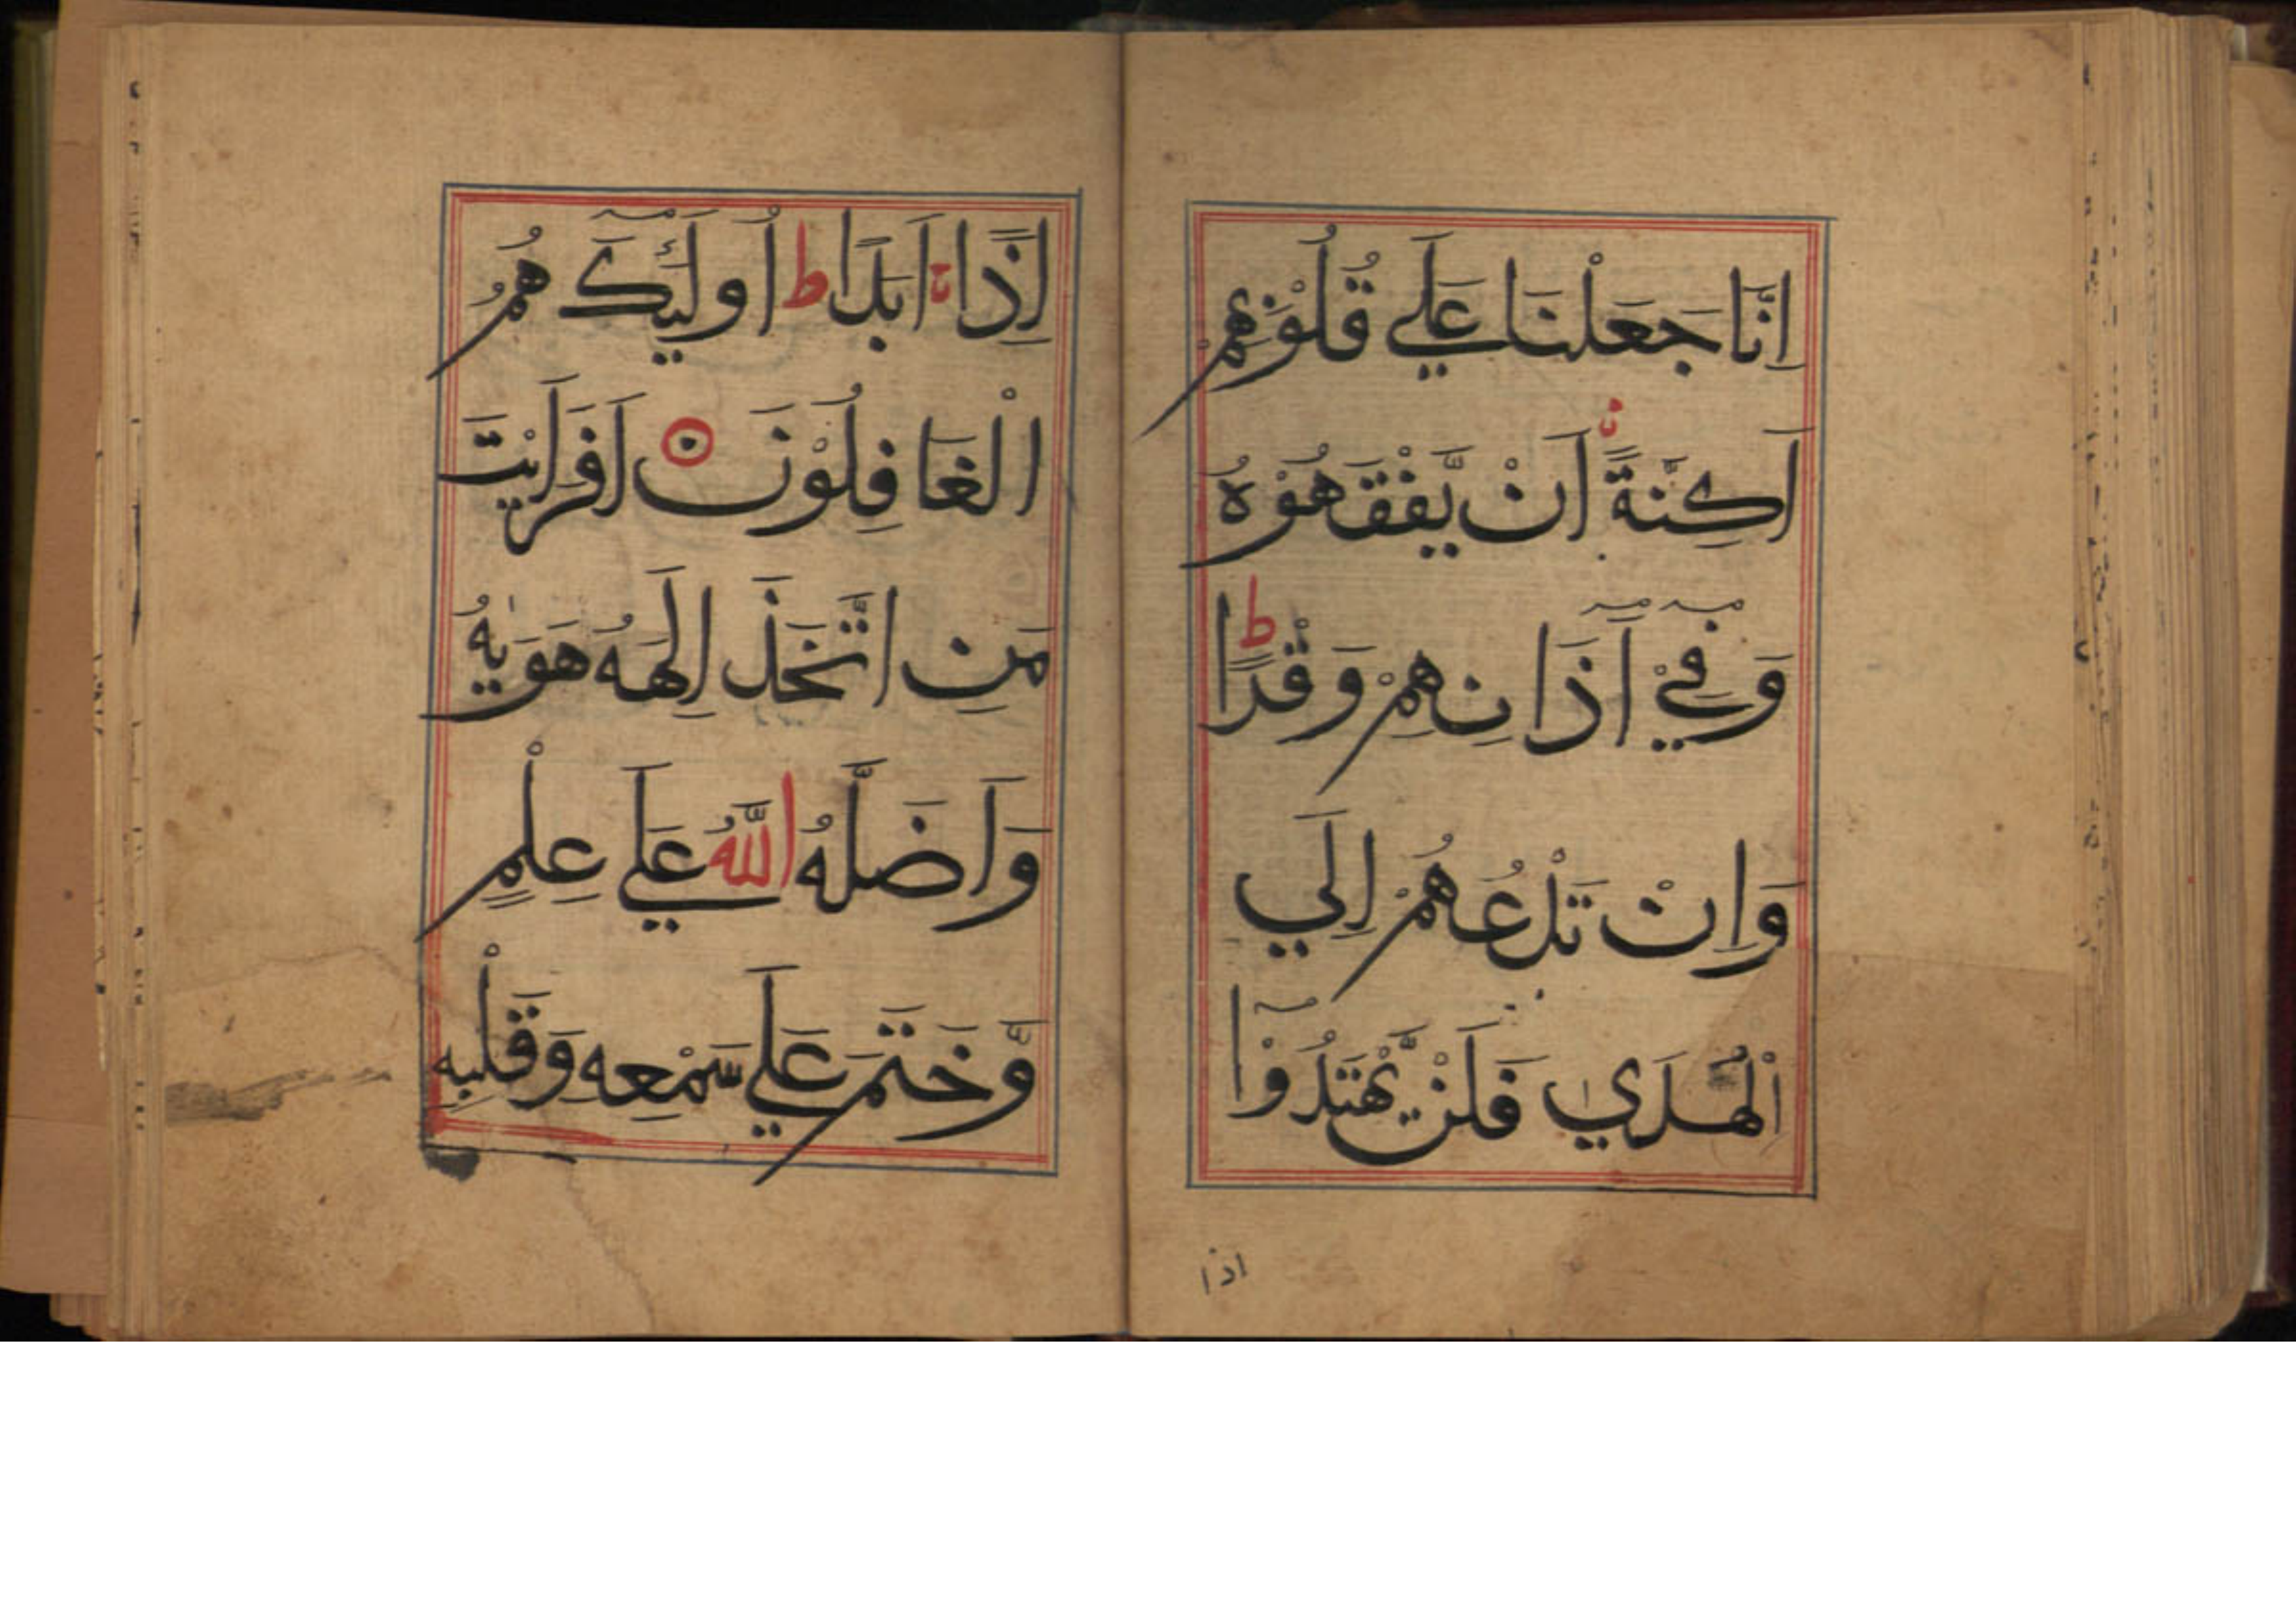 اِنَّا جَعَلْنَا عَلَي قُلُوْبِهِمْ
اَكِنَّةً اَنْ يَّفْقَهُوْهُ
وَفِيْ اَذَانِهِمْ وَقْرًا ط
وَاِنْ تَدْعُهُمْ اِلَي
الْهُدَي فَلَنْ يَّهْتَدُوْا
اذا
اِذًا اَبَدًا ط اُولَئِكَ هُمُ
الْغَافِلُوْنَ اَفَرَاَيْتَ
مَنِ اتَّخَذَ اِلَهَهُ هَوٰيهُ
وَاَضَلَّهُ اللّٰهُ عَلَي عِلْمٍ
وَّخَتَمَ عَلَي سَمْعِهِ وَقَلْبِهِ